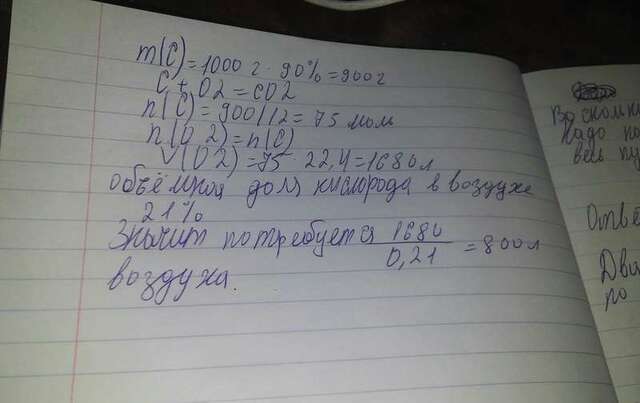 m(C) = 1000 г · 90% = 900 г
C + O2 = CO2
n(C) = 900/12 = 75 мол
n(O2) = n(C)
V(O2) = 75 22,4 = 1680 л
объёмная доля кислорода в воздухе
21%
Значит потребуется 1680/0,21 = 800 л
воздуха.
надо
Отве
по